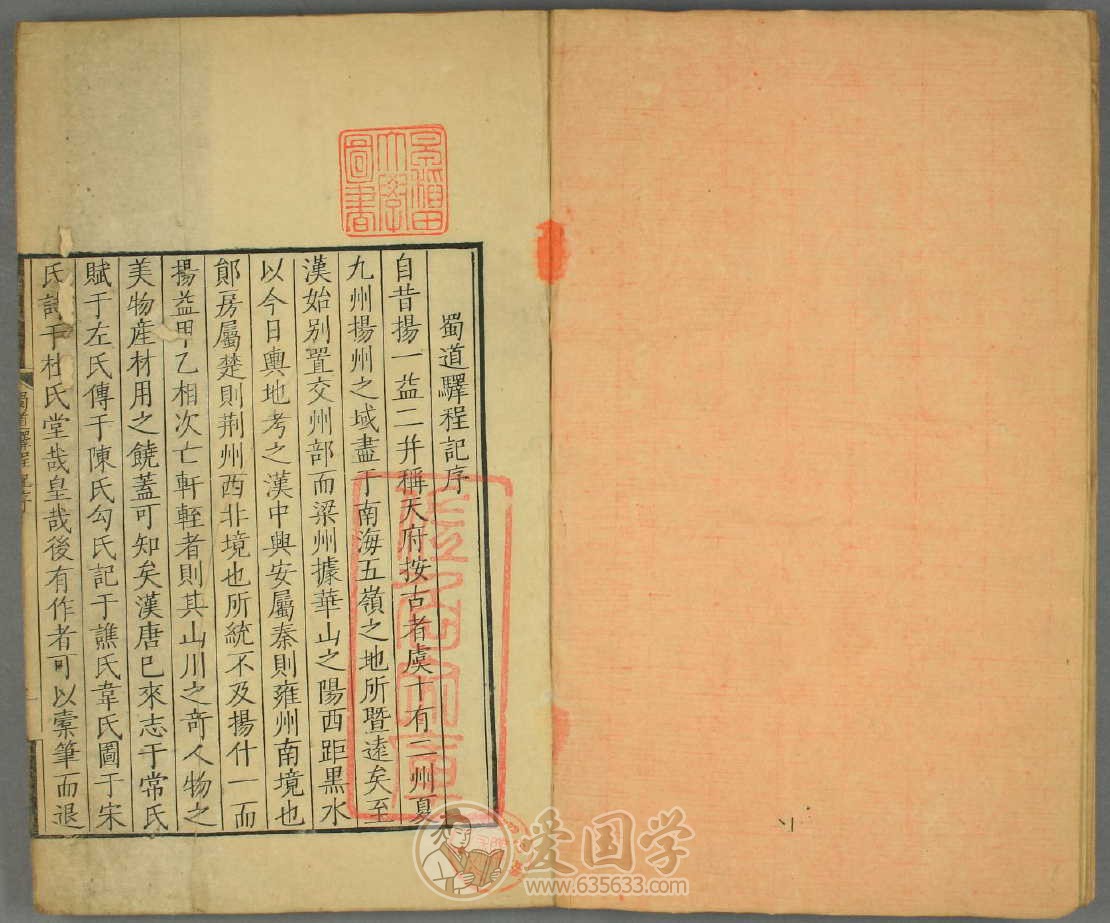 蜀道驛程記序
自昔揚一益二并稱天府按古者虞十有二州夏
九州揚州之域盡于南海五嶺之地所暨遠矣至
漢始别置交州部而梁州據華山之陽西距黒水
以今日輿地考之漢中興安屬秦則雍州南境也
鄖房屬楚則荆州西非境也所統不及揚什一而
揚益甲乙相次亡軒輊者則其山川之奇人物之
美物産材用之饒蓋可知矣漢唐已來志于常氏
賦于左氏傳于陳氏勾氏記于譙氏韋氏圖于宋
氏詩于杜氏堂哉皇哉後有作者可以橐筆而退
蜀道驛程記序
景福
大學
圖書
爱国学
www.635633.com